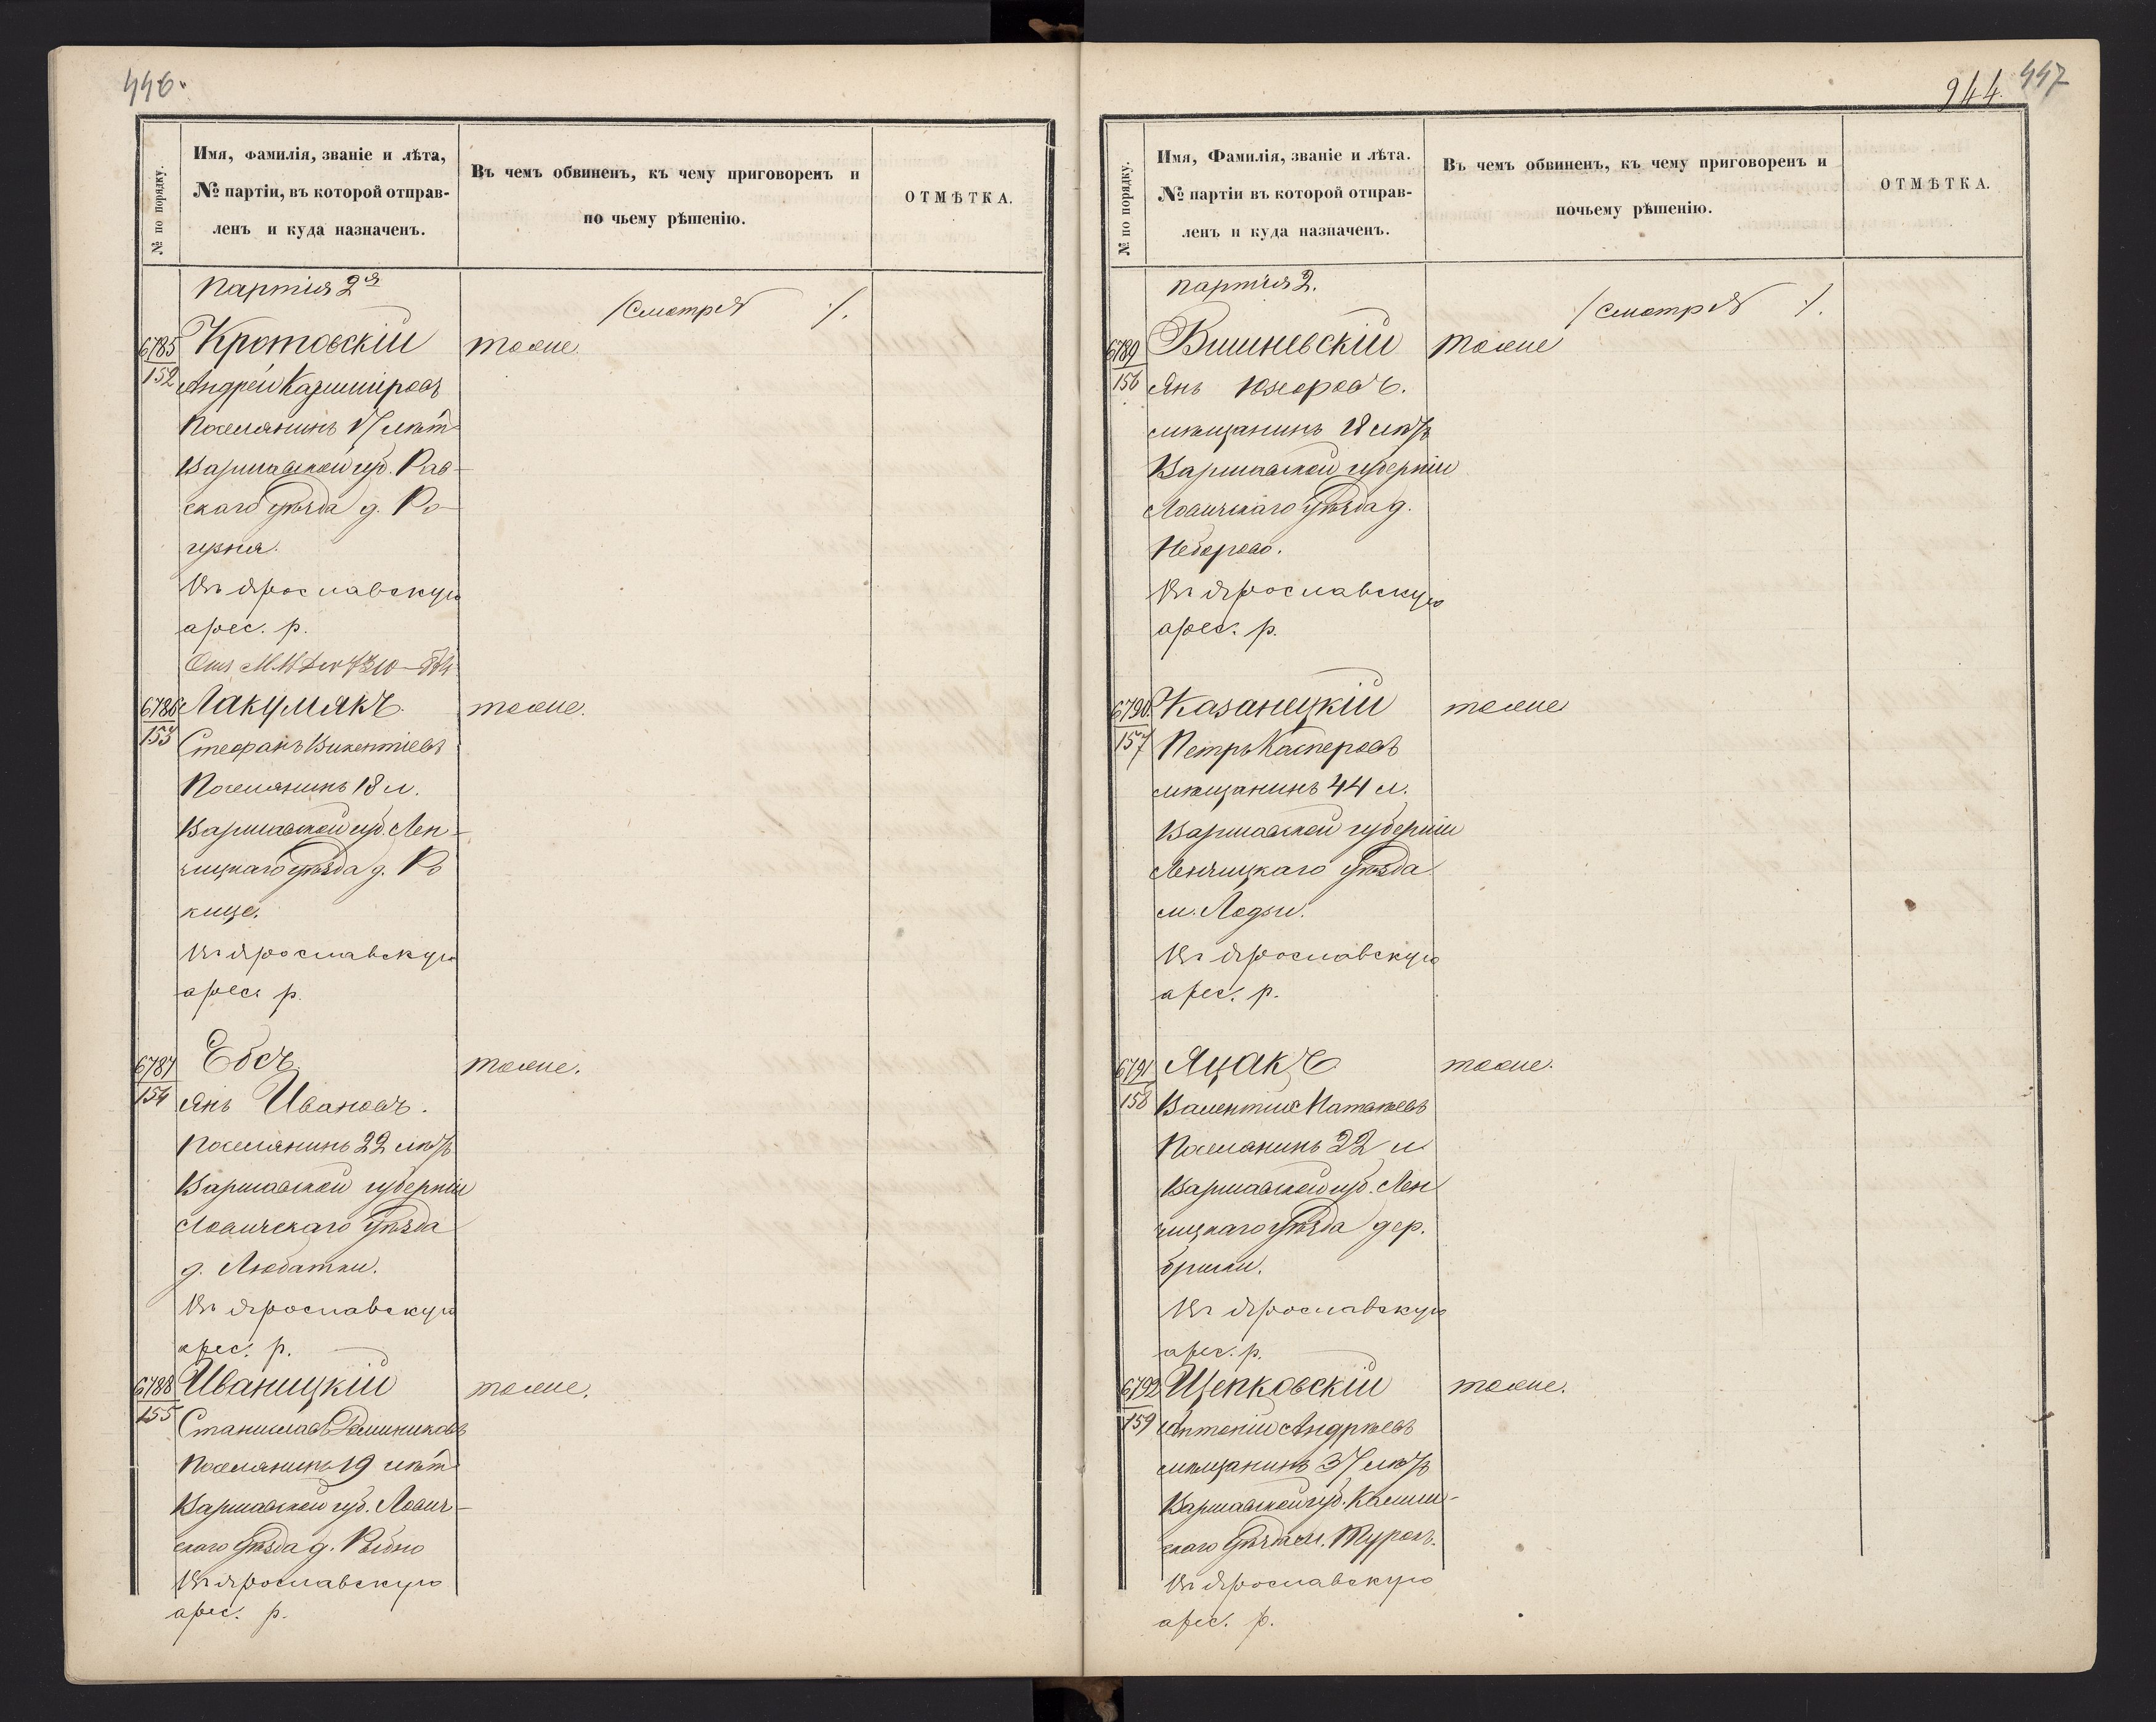 446.
№ по порядку.
Имя, фамилія, званіе и лѣта,
№ партіи, въ которой отправ-
ленъ и куда назначенъ.
Въ чемъ обвиненъ, къ чему приговоренъ и
по чьему рѣшенію.
ОТМѢТКА.
Партія 2я
/Смотрѣ ·/.
6785
152
Кротовскій
тоже.
Андрей Казиміровъ
Поселянинъ 17 лѣтъ
Варшавской губ. Рав-
скаго уѣзда д. Ро-
гузня.
Въ Ярославскую
арес. р.
6786
153
Лакумякъ.
тоже.
Стефанъ Викентіевъ
Поселянинъ 18 л.
Варшавской губ. Лен-
чицкаго уѣзда д. Ро
кице.
Въ Ярославскую
арес. р.
6787
154
Ебсъ
тоже.
Янъ Ивановъ.
Поселянинъ 22 лѣтъ
Варшавской губерніи
Ловичскаго уѣзда
д. Любатки.
Въ Ярославскую
арес. р.
6788
155
Иваницкій
тоже.
Станиславъ Доминиковъ
Поселянинъ 19 лѣтъ
Варшавской губ. Лович-
скаго уѣзда д. Рыбно
Въ Ярославскую
арес. р.
944. 447
№ по порядку.
Имя, Фамилія, званіе и лѣта.
№ партіи въ которой отправ-
ленъ и куда назначенъ.
Въ чемъ обвиненъ, къ чему приговоренъ и
почьему рѣшенію.
ОТМѢТКА.
партія 2.
/Смотрѣ ·/.
6789
156
Вишневскій
тоже
Янъ Юзефовъ.
мѣщанинъ 18 лѣтъ
Варшавской губерніи
Ловичскаго уѣзда д.
Неборово.
Въ Ярославскую
арес. р.
6790
157
Казанецкій
тоже
Петръ Касперовъ
мѣщанинъ 44 л.
Варшавской губерніи
Ленчицкаго уѣзда
м. Лодзи.
Въ Ярославскую
арес. р.
6791
158
Яцакъ
тоже.
Валентій Матвѣевъ
Поселянинъ 22 л.
Варшавской губ. Лен
чицкаго уѣзда дер.
Въ Ярославскую
арес. р.
6792
159
Щепковскій
тоже.
Антоній Андрѣевъ
мѣщанинъ 37 лѣтъ
Варшавской губ. Калиш-
скаго уѣзда м. Турокъ.
Въ Ярославскую
арес. р.